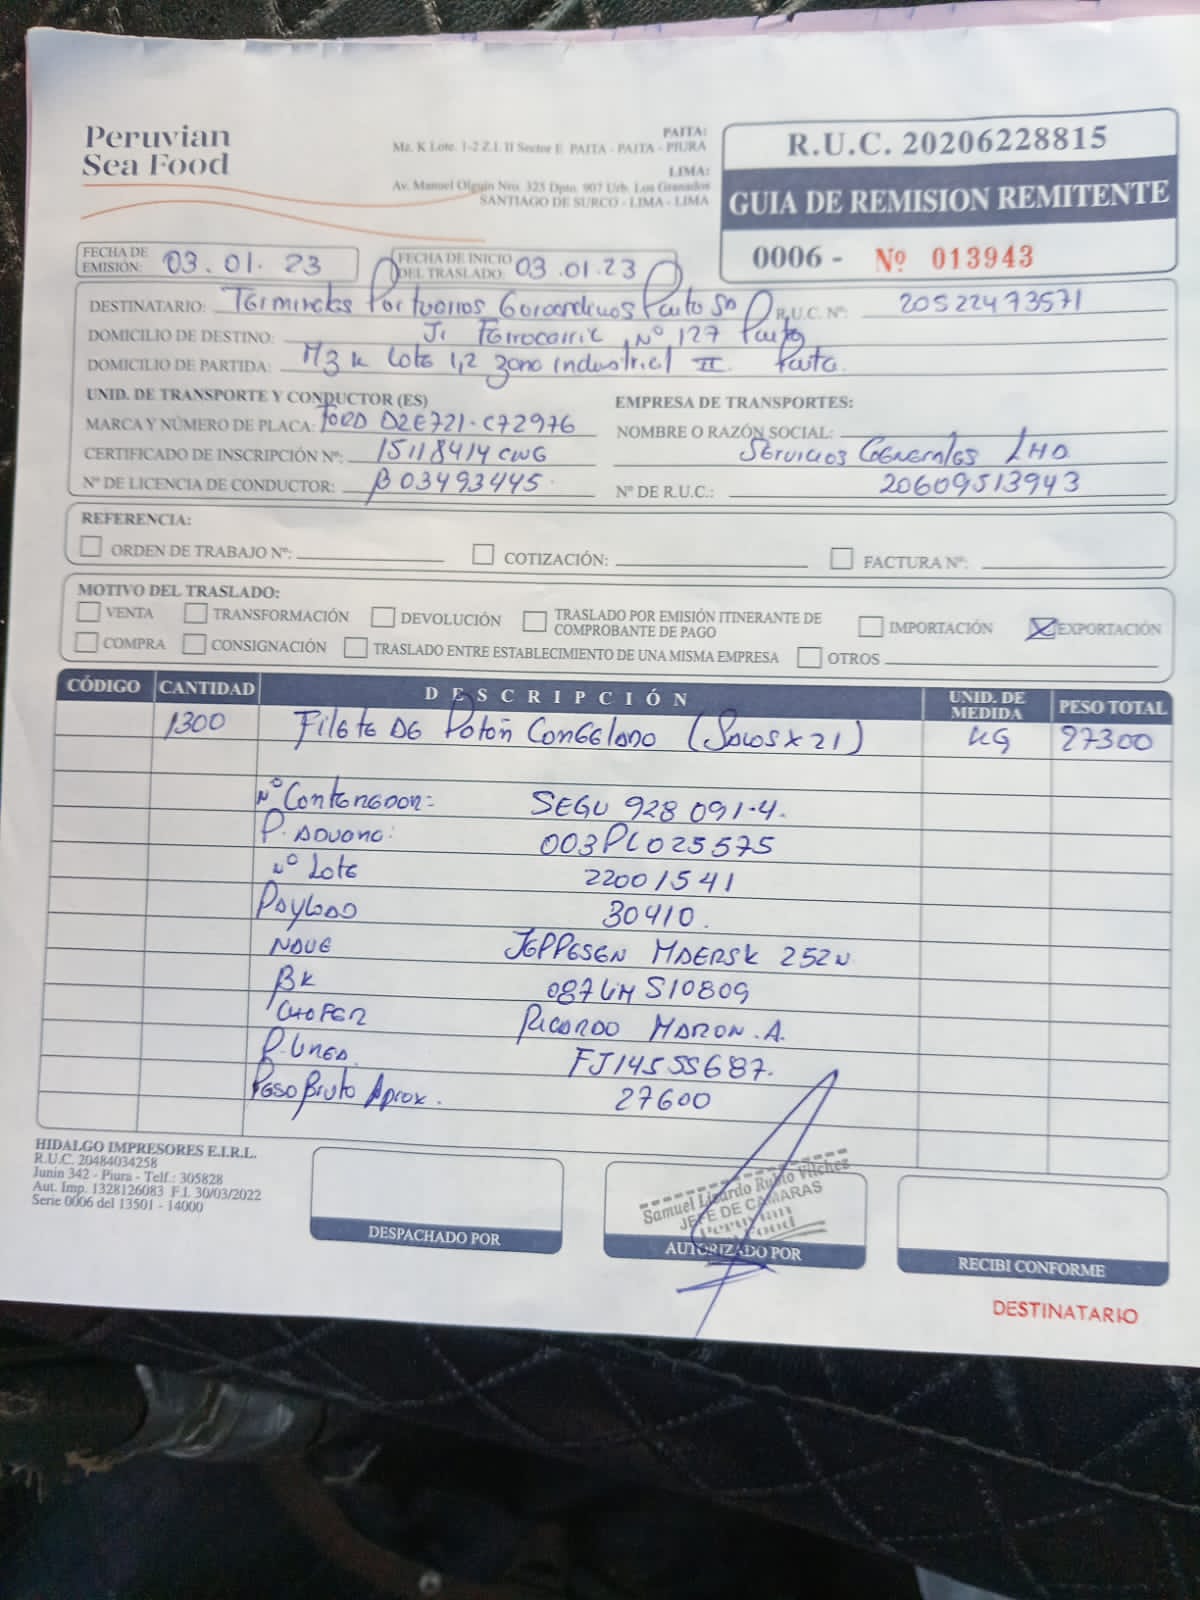 Peruvian
Sea Food
PAITA:
Mz. K Lote. 1-2 Z.I. II Sector E PAITA - PAITA - PIURA
LIMA:
Av. Manuel Olguin Nro. 325 Dpto. 907 Urb. Los Granados
SANTIAGO DE SURCO - LIMA - LIMA
R.U.C. 20206228815
GUIA DE REMISION REMITENTE
0006 - Nº 013943
FECHA DE EMISIÓN: 03.01.23
FECHA DE INICIO DEL TRASLADO: 03.01.23
DESTINATARIO: Terminales Portuarios Euroandinos Paita SA R.U.C. Nº: 20522473571
DOMICILIO DE DESTINO: Jr Ferrocarril Nº 127 Paita
DOMICILIO DE PARTIDA: Mz K Lote 1,2 zona industrial II Paita.
UNID. DE TRANSPORTE Y CONDUCTOR (ES)
MARCA Y NÚMERO DE PLACA: FORD D2E721-C72976
CERTIFICADO DE INSCRIPCIÓN Nº: 15118414 CNG
Nº DE LICENCIA DE CONDUCTOR: B03493445
EMPRESA DE TRANSPORTES:
NOMBRE O RAZÓN SOCIAL:
Servicios Generales LHD
Nº DE R.U.C.: 20609513943
REFERENCIA:
ORDEN DE TRABAJO Nº: COTIZACIÓN: FACTURA Nº:
MOTIVO DEL TRASLADO:
VENTA TRANSFORMACIÓN DEVOLUCIÓN TRASLADO POR EMISIÓN ITINERANTE DE COMPROBANTE DE PAGO IMPORTACIÓN EXPORTACIÓN
COMPRA CONSIGNACIÓN TRASLADO ENTRE ESTABLECIMIENTO DE UNA MISMA EMPRESA OTROS
CÓDIGO CANTIDAD DESCRIPCIÓN UNID. DE MEDIDA PESO TOTAL
1300 Filete De Potón Congelado (Sacos x 21) KG 27300
Nº Contenedor: SEGU 928 091-4.
P. Aduana: 003PL025575
Nº Lote 22001541
Payload 30410.
NAVE JEPPESEN MAERSK 252N
BK 087LM S10809
CHOFER RICARDO MARON.A.
P. Linea. FJ14555687.
Peso Bruto Aprox. 27600
HIDALGO IMPRESORES E.I.R.L.
R.U.C. 20484034258
Junin 342 - Piura - Telf.: 305828
Aut. Imp. 1328126083 F.I. 30/03/2022
Serie 0006 del 13501 - 14000
DESPACHADO POR
Samuel Lizardo Rubio Vilchez
JEFE DE CAMARAS
Peruvian
Sea Food
AUTORIZADO POR
RECIBI CONFORME
DESTINATARIO